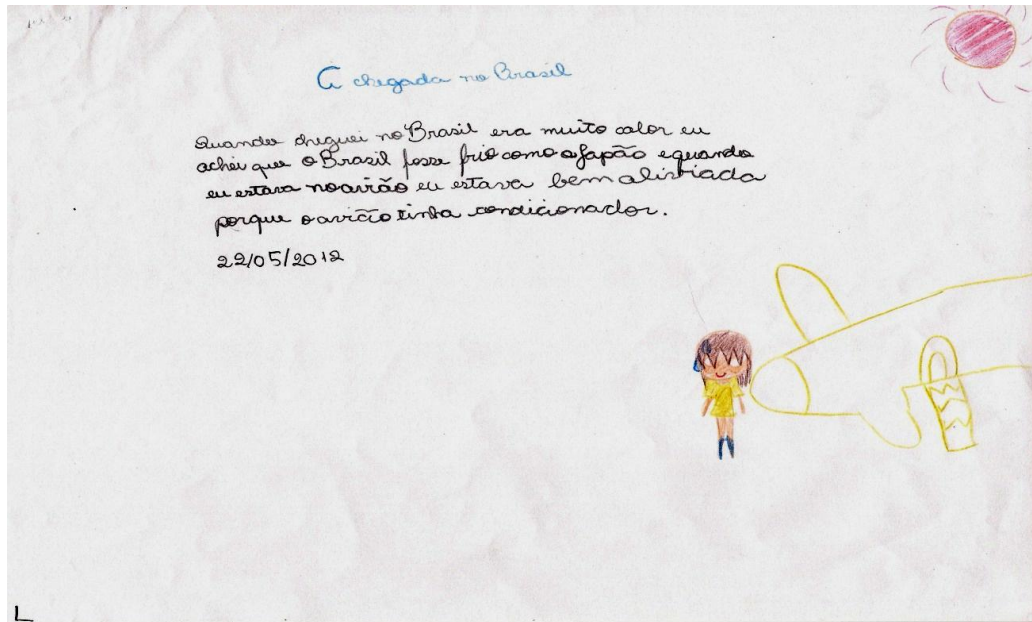 A chegada no Brasil
Quando cheguei no Brasil era muito calor eu
achei que o Brasil fosse frio como o Japão e quando
eu estava no avião eu estava bem alisbiada
porque o avião tinha condicionador.
22/05/2012
L